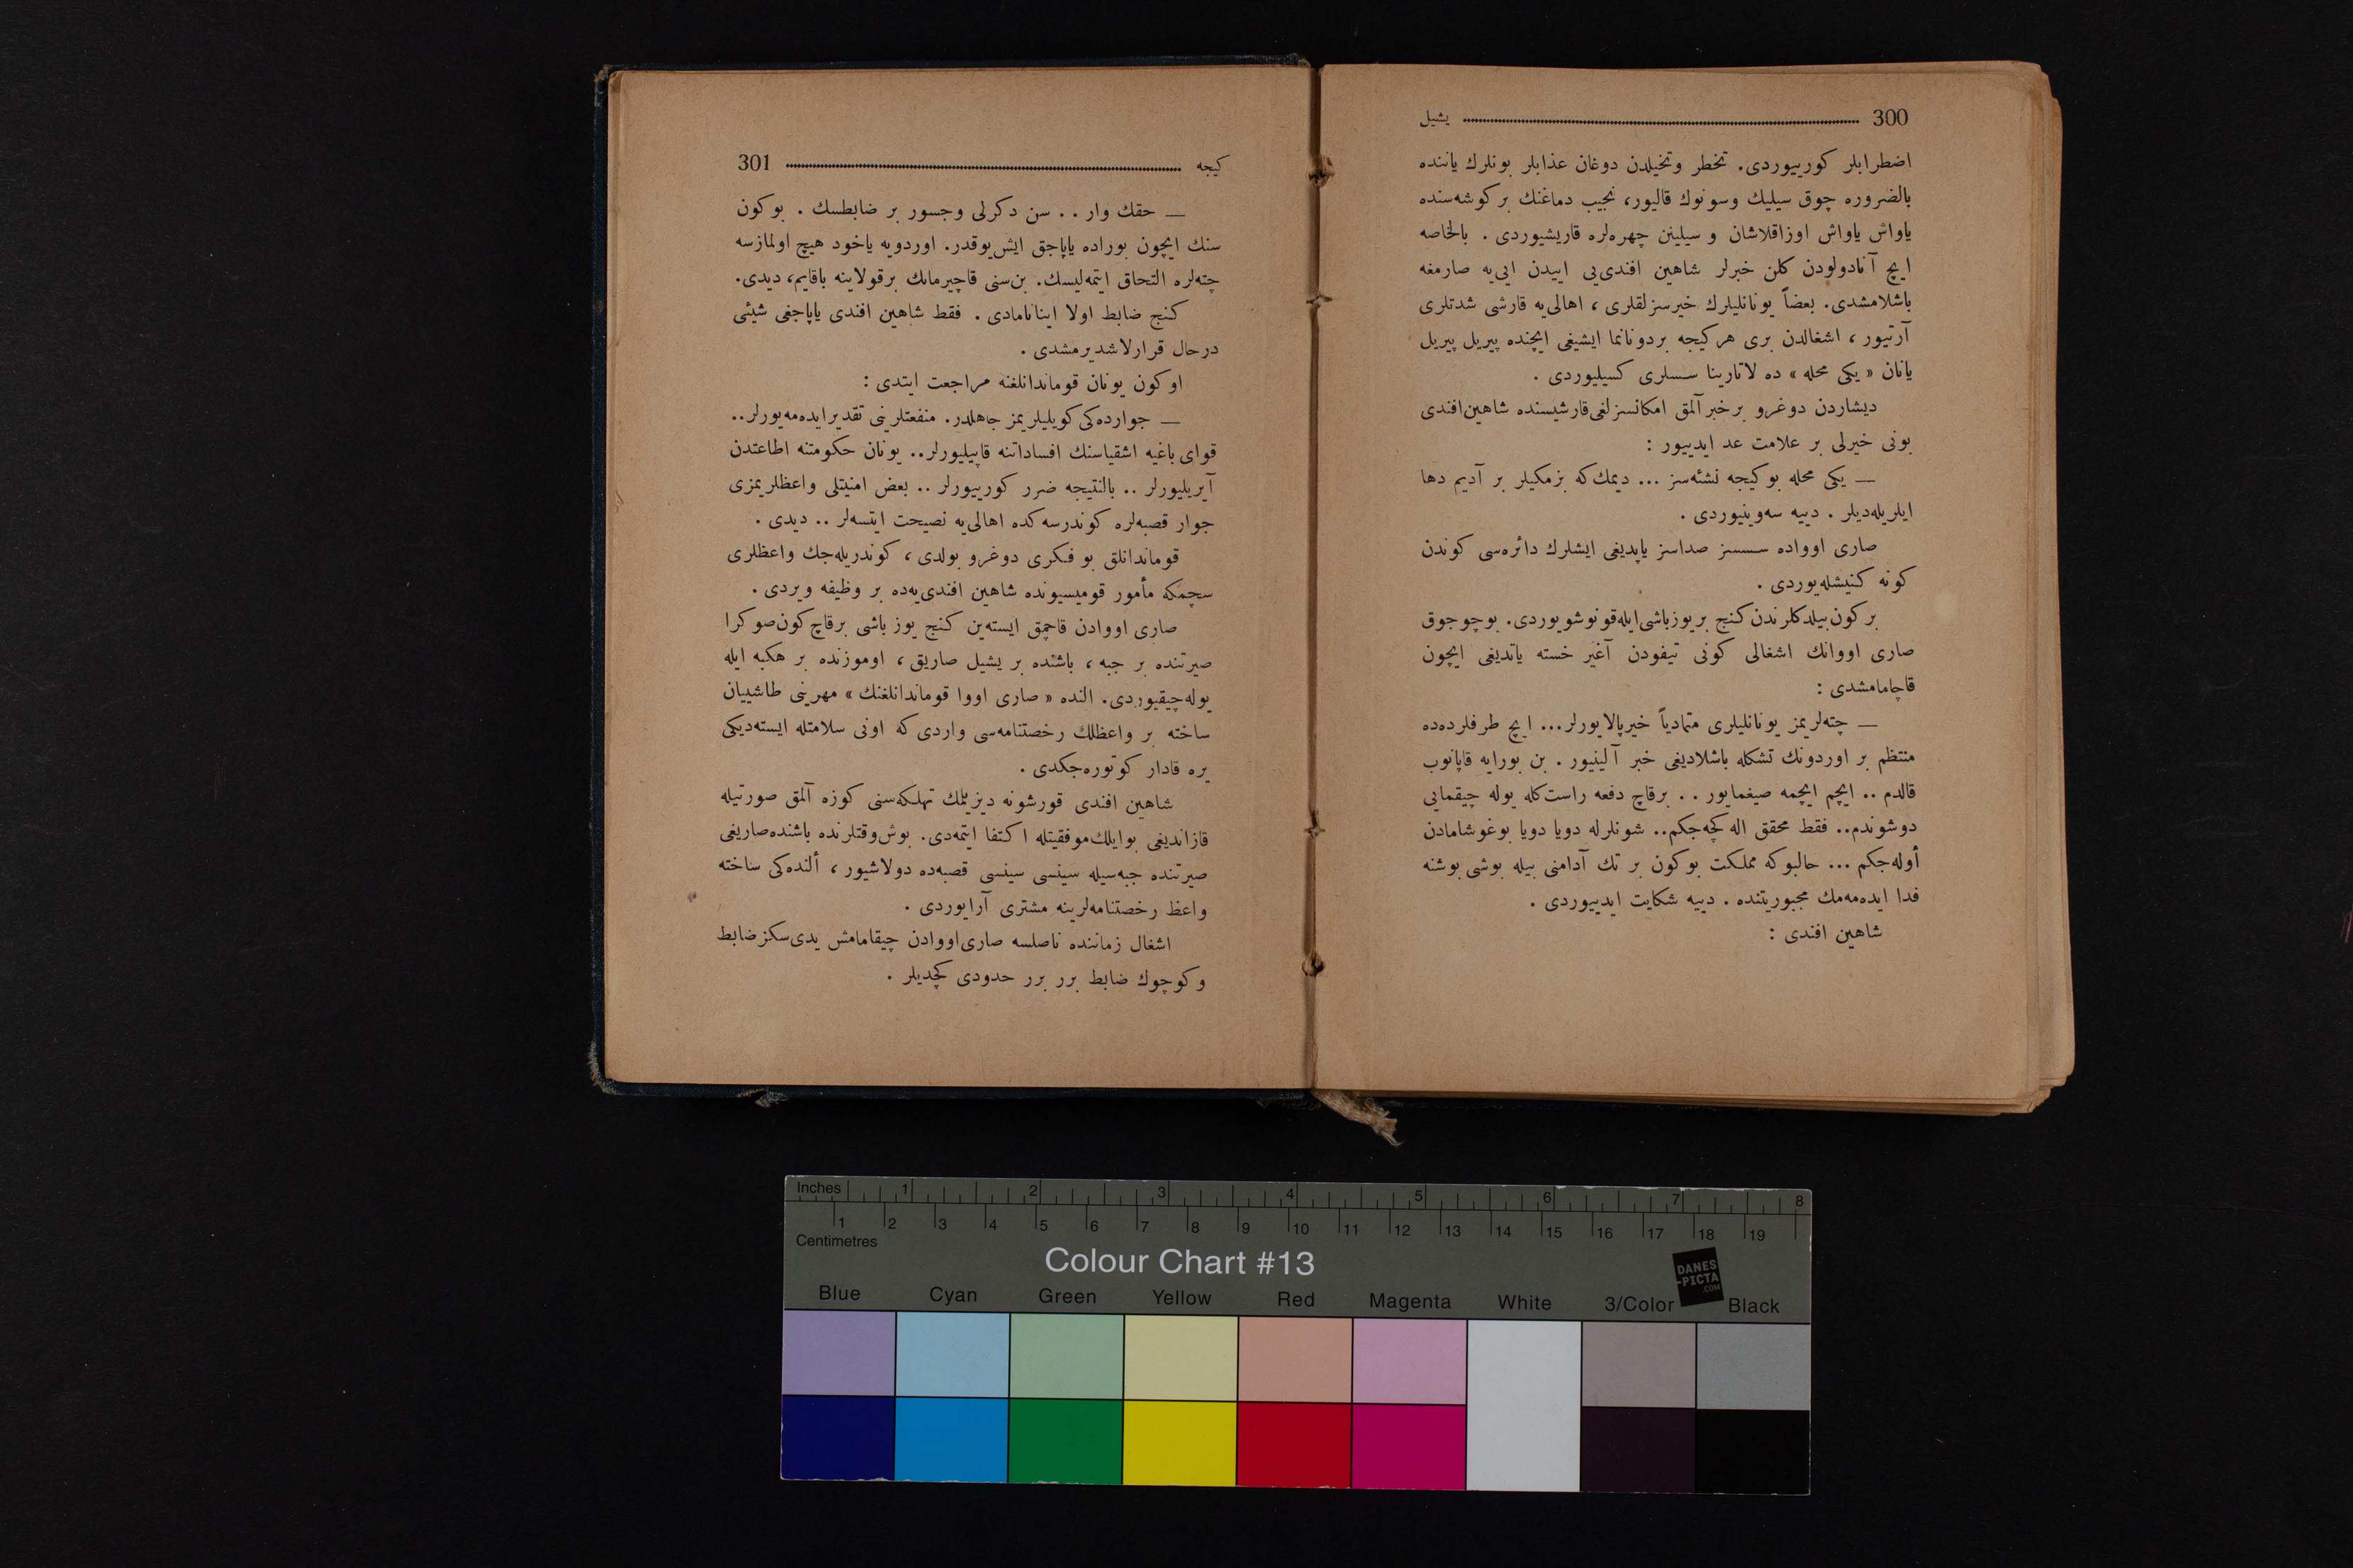 300 يشيل
اضطرابلر كورييوردى. تخطر وتخيلدن دوغان عذابلر بونلرك ياننده
بالضروره چوق سيليك وسونوك قاليور، نجيب دماغنك بركوشه‌سنده
ياواش ياواش اوزاقلاشان و سيلينن چهره‌لره قاريشيوردى . بالخاصه
ايچ آنادولودن كلن خبرلر شاهين افندى‌يى اييدن ايى‌يه صارمغه
باشلامشدى. بعضاً يونانليلرك خيرسزلقلرى ، اهالى‌يه قارشى شدتلرى
آرتيور ، اشغالدن برى هركيجه بردونانما ايشيغى ايچنده پيريل پيريل
يانان « يكى محله » ده لاتارينا سسلرى كسيليوردى .
ديشاردن دوغرو برخبر آلمق امكانسزلغى‌قارشيسنده شاهين‌افندى
بونى خيرلى بر علامت عد ايدييور :
— يكى محله بوكيجه نشئه‌سز ... ديمك‌كه بزمكيلر بر آديم دها
ايلريله‌ديلر . دييه سه‌وينيوردى .
صارى اوواده سسسز صداسز ياپديغى ايشلرك دائره‌سى كوندن
كونه كنيشله‌يوردى .
بركون‌بيلدكلرندن‌كنج بريوزباشى‌ايله‌قونوشويوردى. بوچوجوق
صارى اووانك اشغالى كونى تيفودن آغير خسته ياتديغى ايچون
قاچامامشدى :
— چته‌لريمز يونانليلرى متمادياً خيرپالايورلر... ايچ طرفلرده‌ده
منتظم بر اوردونك تشكله باشلاديغى خبر آلينيور . بن بورايه قاپانوب
قالدم .. ايچم ايچمه صيغمايور . . برقاچ دفعه راست‌كله يوله چيقمايى
دوشوندم.. فقط محقق اله كچه‌جكم.. شونلرله دويا دويا بوغوشامادن
أوله‌جكم ... حالبوكه مملكت بوكون بر تك آدامنى بيله بوشى بوشنه
فدا ايده‌مه‌مك مجبوريتنده . دييه شكايت ايدييوردى .
شاهين افندى :
كيجه 301
— حقك وار . . سن دكرلى وجسور بر ضابطسك . بوكون
سنك ايچون بوراده ياپاجق ايش‌يوقدر. اوردويه ياخود هيچ اولمازسه
چته‌لره التحاق ايتمه‌ليسك. بن‌سنى قاچيرمانك برقولاينه باقايم، ديدى.
كنج ضابط اولا اينانامادى . فقط شاهين افندى ياپاجغى شيئى
درحال قرارلاشديرمشدى .
اوكون يونان قومانداﻧلغنه مراجعت ايتدى :
— جوارده‌كى كويليلريمز جاهلدر. منفعتلرينى تقديرايده‌مه‌يورلر..
قواى باغيه اشقياسنك افساداتنه قاپيليورلر.. يونان حكومتنه اطاعتدن
آيريليورلر .. بالنتيجه ضرر كورييورلر .. بعض امنيتلى واعظلريمزى
جوار قصبه‌لره كوندرسه‌كده اهالى‌يه نصيحت ايتسه‌لر .. ديدى .
قومانداﻧلق بو فكرى دوغرو بولدى ، كوندريله‌جك واعظلرى
سچمكه مأمور قوميسيونده شاهين افندى‌يه‌ده بر وظيفه ويردى .
صارى اووادن قاچمق ايسته‌ين كنج يوز باشى برقاچ كون‌صوكرا
صيرتنده بر جبه ، باشنده بر يشيل صاريق ، اوموزنده بر هكبه ايله
يوله‌چيقيوردى. النده « صارى اووا قومانداﻧلغنك » مهرينى طاشييان
ساخته بر واعظلك رخصتنامه‌سى واردى كه اونى سلامتله ايسته‌ديكى
يره قادار كوتوره‌جكدى .
شاهين افندى قورشونه ديزيلمك تهلكه‌سنى كوزه آلمق صورتيله
قازانديغى بوايلك‌موفقيتله اكتفا ايتمه‌دى. بوش‌وقتلرنده باشنده‌صاريغى
صيرتنده جبه‌سيله سينسى سينسى قصبه‌ده دولاشيور ، ألنده‌كى ساخته
واعظ رخصتنامه‌لرينه مشترى آرايوردى .
اشغال زماننده ناصلسه صارى‌اووادن چيقامامش يدى‌سكز ضابط
وكوچوك ضابط برر برر حدودى كچديلر .
Inches 1 2 3 4 5 6 7 8
1 2 3 4 5 6 7 8 9 10 11 12 13 14 15 16 17 18 19
Centimetres
Colour Chart #13
DANES
-PICTA
.COM
Blue Cyan Green Yellow Red Magenta White 3/Color Black